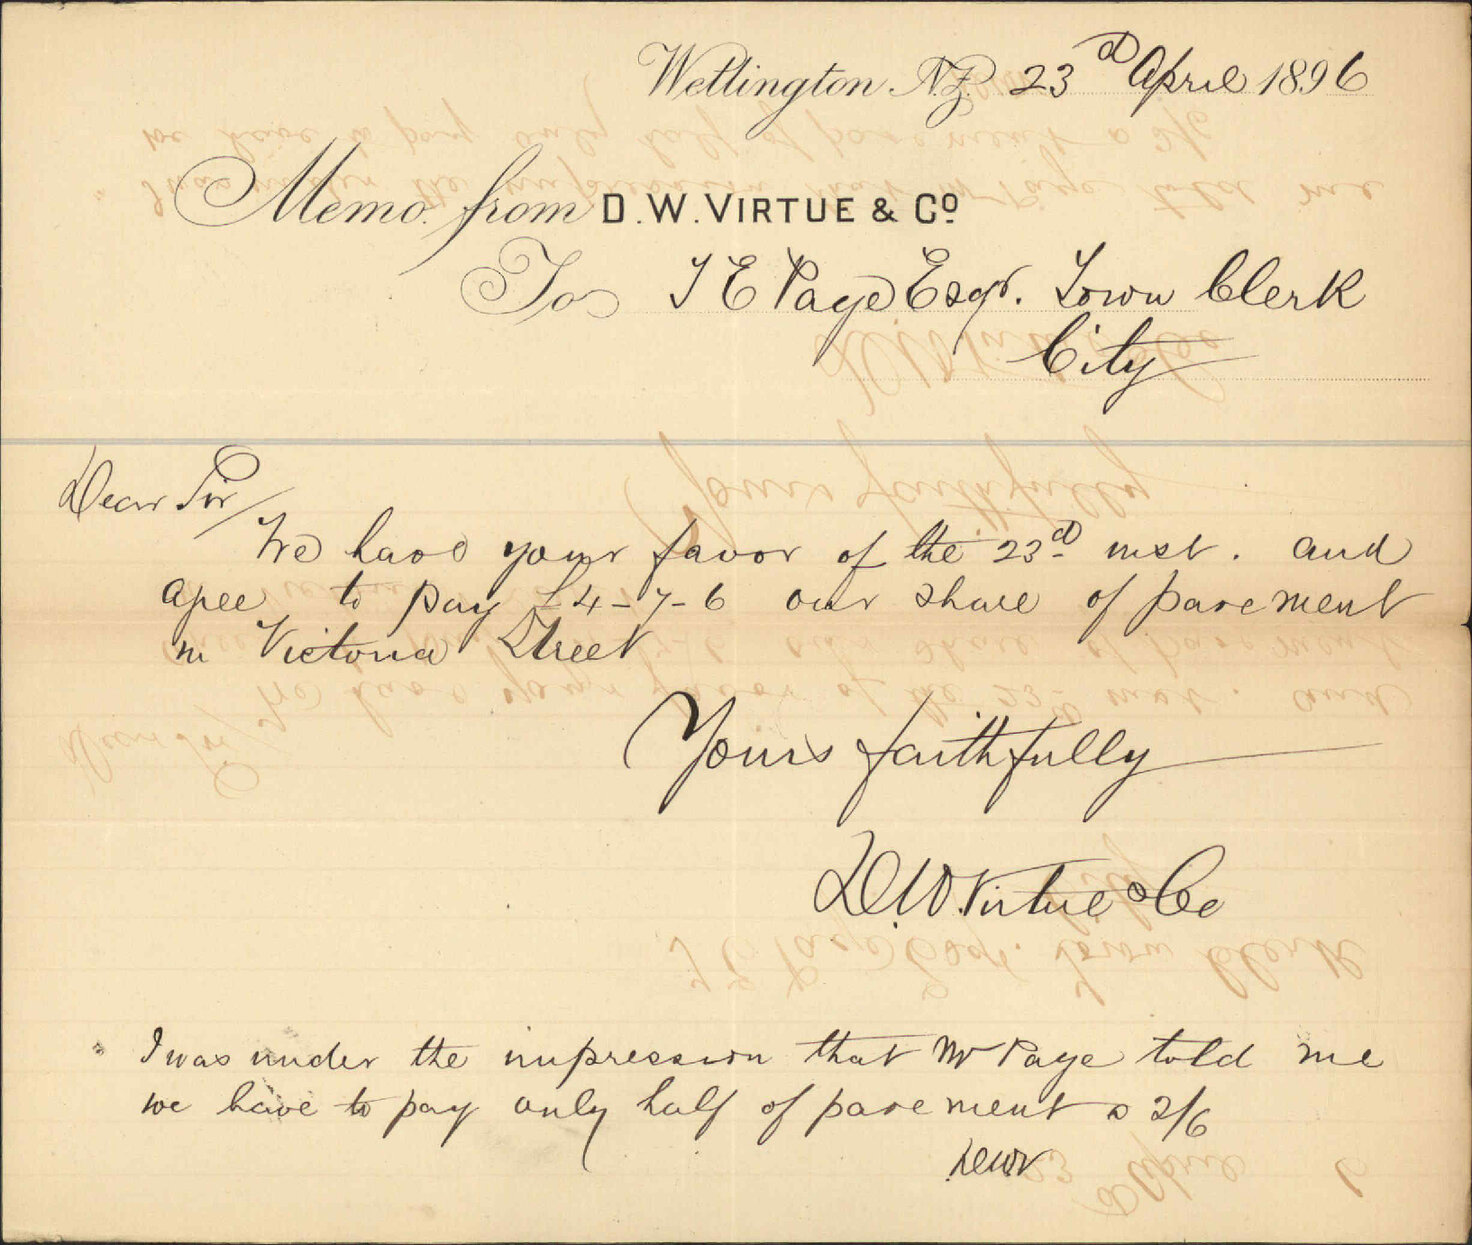 Wellington N.Z. 23d April 1896
Memo. from D.W. VIRTUE & Co.
To T E Page Esqr. Town Clerk
City
Dear Sir/
We have your favor of the 23d inst. and
agree to pay £4-7-6 our share of pavement
in Victoria Street
Yours faithfully
D.W. Virtue & Co
I was under the impression that Mr Page told me
we have to pay only half of pavement @ 2/6
DWV